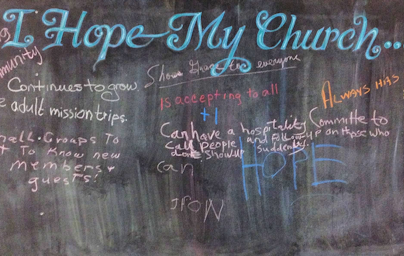 I Hope My Church...
munity
Shows Grace to everyone
Continues to grow
is accepting to all
ALWAYS HAS
adult mission trips.
+1
Can have a hospitality Committe to
Call People and Follow up on those who
don't show up suddenly.
HOPE
Small Groups To
To Know new
members +
guests!
can
grow